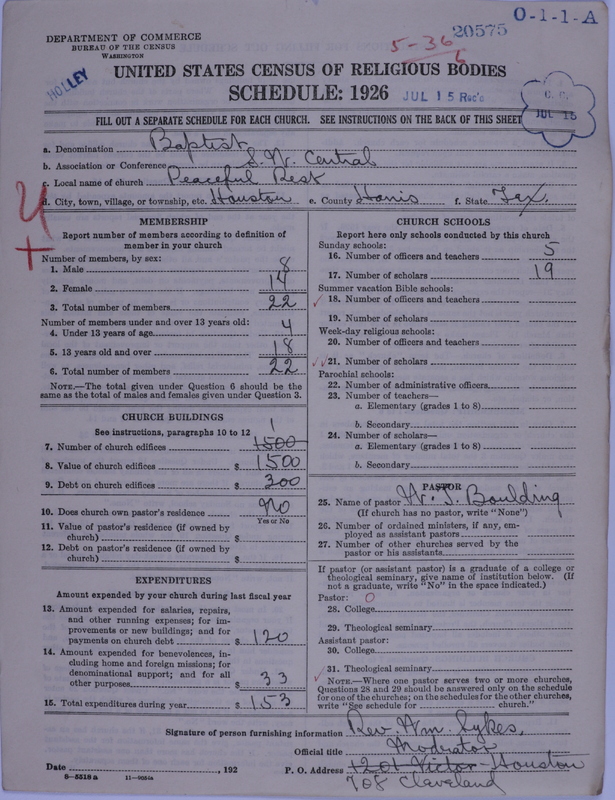 DEPARTMENT OF COMMERCE
BUREAU OF THE CENSUS
WASHINGTON
20575
0-1-1-A
5-36
6
HOLLEY
UNITED STATES CENSUS OF RELIGIOUS BODIES
SCHEDULE: 1926
JUL 15 Rec'd
C. C.
JUL 15
FILL OUT A SEPARATE SCHEDULE FOR EACH CHURCH. SEE INSTRUCTIONS ON THE BACK OF THIS SHEET
a. Denomination Baptist
b. Association or Conference S. W. Central
c. Local name of church Peaceful Rest
d. City, town, village, or township, etc. Houston e. County Harris f. State Tex.
MEMBERSHIP
Report number of members according to definition of
member in your church
Number of members, by sex:
1. Male 8
2. Female 14
3. Total number of members 22
Number of members under and over 13 years old:
4. Under 13 years of age 4
5. 13 years old and over 18
6. Total number of members 22
NOTE.—The total given under Question 6 should be the
same as the total of males and females given under Question 3.
CHURCH BUILDINGS
See instructions, paragraphs 10 to 12
1
7. Number of church edifices 1500
8. Value of church edifices $ 1500
9. Debt on church edifices $ 300
10. Does church own pastor's residence No
Yes or No
11. Value of pastor's residence (if owned by
church) $
12. Debt on pastor's residence (if owned by
church) $
EXPENDITURES
Amount expended by your church during last fiscal year
13. Amount expended for salaries, repairs,
and other running expenses; for im-
provements or new buildings; and for
payments on church debt $ 120
14. Amount expended for benevolences, in-
cluding home and foreign missions; for
denominational support; and for all
other purposes $ 33
15. Total expenditures during year $ 153
CHURCH SCHOOLS
Report here only schools conducted by this church
Sunday schools:
16. Number of officers and teachers 5
17. Number of scholars 19
Summer vacation Bible schools:
18. Number of officers and teachers
19. Number of scholars
Week-day religious schools:
20. Number of officers and teachers
21. Number of scholars
Parochial schools:
22. Number of administrative officers
23. Number of teachers—
a. Elementary (grades 1 to 8)
b. Secondary
24. Number of scholars—
a. Elementary (grades 1 to 8)
b. Secondary
PASTOR
25. Name of pastor W. J. Boulding
(If church has no pastor, write "None")
26. Number of ordained ministers, if any, em-
ployed as assistant pastors
27. Number of other churches served by the
pastor or his assistants
If pastor (or assistant pastor) is a graduate of a college or
theological seminary, give name of institution below. (If
not a graduate, write "No" in the space indicated.)
Pastor: 0
28. College
29. Theological seminary
Assistant pastor:
30. College
31. Theological seminary
NOTE.—Where one pastor serves two or more churches,
Questions 28 and 29 should be answered only on the schedule
for one of the churches; on the schedules for the other churches,
write "See schedule for church."
Signature of person furnishing information Rev. Wm. Sykes,
Official title Moderator
Date , 192 P. O. Address 1201 Victor - Houston
708 Cleveland
8-5518 a 11-9054a